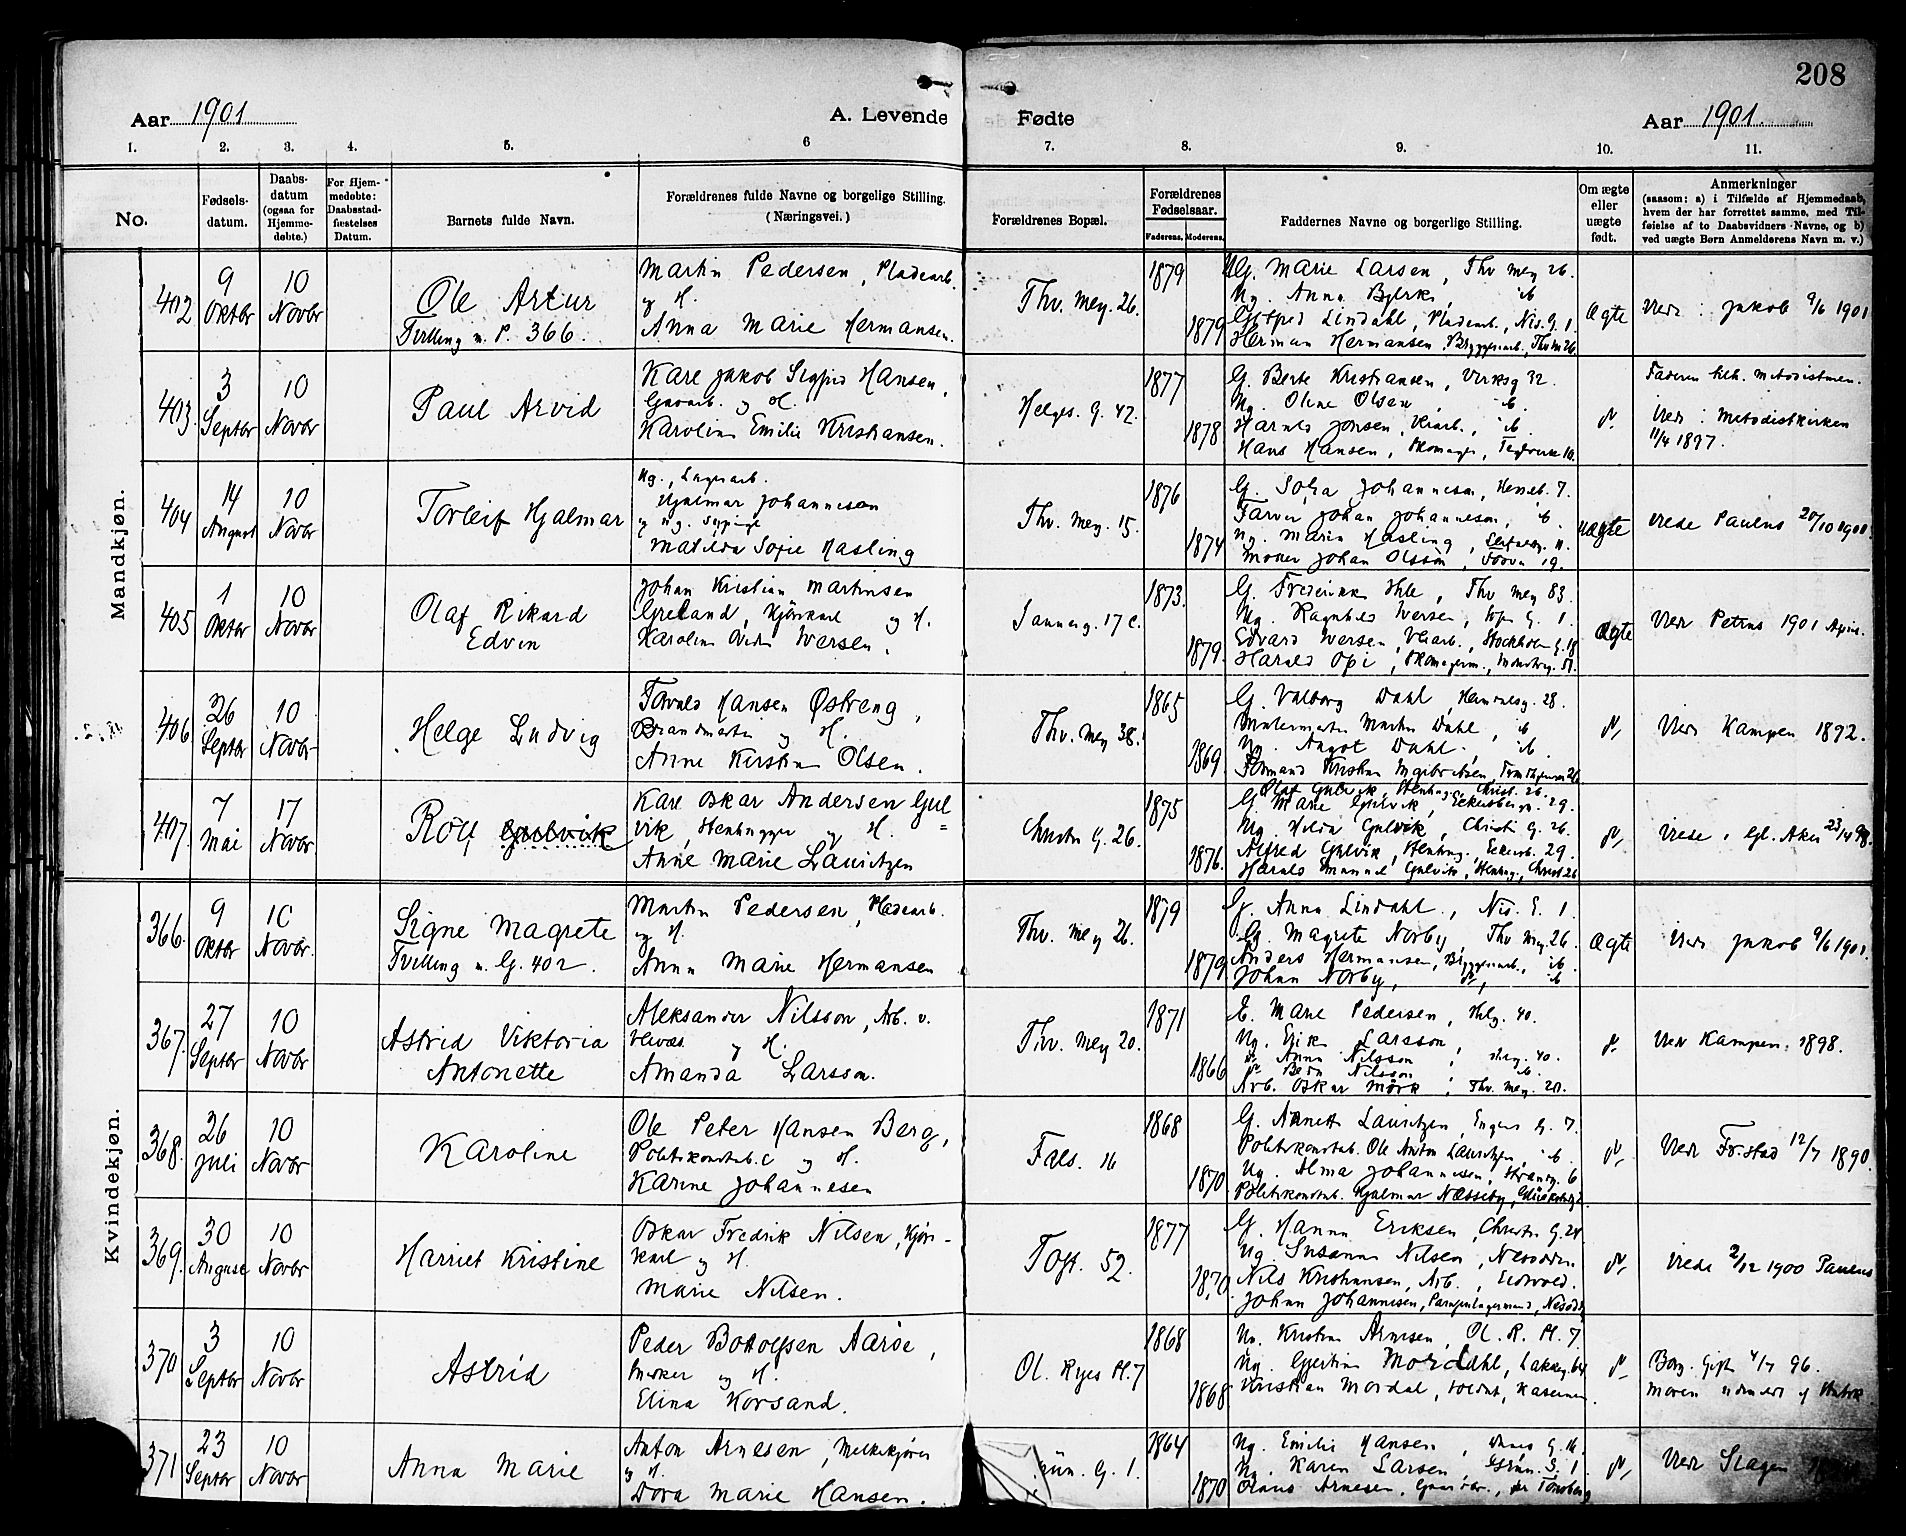 208
Aar 1901
A. Levende Fødte
Aar 1901.
1. 2. 3. 4. 5. 6 7. 8. 9. 10. 11.
No.
Fødsels-datum.
Daabs-datum (ogsaa for Hjemme-døbte.)
For Hjem-medøbte: Daabsstad-fæstelses Datum.
Barnets fulde Navn.
Forældrenes fulde Navne og borgelige Stilling. (Næringsvei.)
Forældrenes Bopæl.
Forældrenes Fødselsaar.
Faderens. Moderens.
Faddernes Navne og borgerlige Stilling.
Om ægte eller uægte født.
Anmerkninger
(saasom: a) i Tilfælde af Hjemmedaab, hvem der har forrettet samme, med Til-føielse af to Daabsvidners Navne, og b) ved uægte Børn Anmelderens Navn m. v.)
Mandkjøn.
402 9 Oktbr 10 Novbr
Ole Artur
Tvilling m. P. 366.
Martin Pedersen, Pladearb.
og H.
Anna Marie Hermansen.
Thv. Mey. 26.
1879 1879
G. Marie Larsen, Thv Mey 26.
Ug. Anna
Lindahl, Pladearb., Nis. G. 1.
Herman Hermansen, Bryggeriarb., Thv M 26
Ægte
Viede: Jakob 9/6 1901
403. 3 Septbr 10 Novbr
Paul Arvid
Karl Jakob Sigfrid Hansen,
og H.
Karoline Emilie Kristiansen.
Helges. G. 42.
1877 1878
G. Berte Kristiansen, Verksg 32.
Ug. Oline Olsen, ib.
Harald Jensen, ib.
Hans Hansen, Skomager, Teglverk 10.
Faderen tilh. Metodistmen.
Viede: Metodistkirken
11/4 1897.
404 14 August 10 Novbr
Torleif Hjalmar
Ug., Lagerarb.
Hjalmar Johannesen
og Ug. Sypige
Matilda Sofie Hasling
Thv. Mey. 15.
1876 1874
G. Sofia Johannesen, Hesseb. 7.
Farver Johan Johannesen, ib.
Ug. Marie Hasling,
Johan Olsson, 19.
uægte
405 1 Oktbr 10 Novbr
Olaf Rikard
Edvin
Johan Kristian Martinsen
Greland, Kjørekarl og H.
Karoline Iversen.
Jannerg. 17 c.
1873. 1879.
G. Fredrikke Thv Mey 83.
Ug. Ragnhild Iversen, G. 1.
Edvard Iversen, Stockholm G. 18
Harald Opi, Skomagerm.,
Ægte
Viede Petrus 1901 April.
406 26 Septbr 10 Novbr
Helge Ludvig
Torvald Hansen Østreng,
og H.
Anne Kirstine Olsen.
Thv. Mey 38.
1865 1869
G. Valborg Dahl, Heimdalsg. 28.
Malermester Martin Dahl, ib
Ug. Aagot Dahl, ib
Formand Kristian
Viede Kampen 1892.
407. 7 Mai 17 Novbr
Rolf Gulvik
Karl Oskar Andersen Gul=
vik, Stenhugger og H.
Anne Marie Lauritzen
Christi G. 26.
1875 1876.
Olaf Gulvik, Stenhug., Christ. 26.
G. Marie Gulvik, Eckersbergg. 29.
Ug. Hilda Gulvik, Christi G. 26.
Alfred Gulvik, Stenhug., Eckersb. 29.
Harald Gulvik, Stenhug., Christ 26
Viede, Gl. Aker 23/4 98.
Kvindekjøn.
366. 9 Oktbr 10 Novbr.
Signe Magrete
Tvilling m. G. 402.
Martin Pedersen, Pladearb.
og H.
Anna Marie Hermansen
Thv. Mey 26.
1879 1879
G. Anna Lindahl, Nis. G. 1.
G. Magrete Norby, Thv Mey 26.
Anders Hermansen, Bryggeriarb., ib
Johan Norby, ib
Ægte
Viede Jakob 9/6 1901.
367. 27 Septbr 10 Novbr
Astrid Viktoria
Antonette
Aleksander Nilsson, Arb. v.
og H.
Amanda Larsson.
Thv. Mey 20.
1871 1866
E. Marie Pedersen, 40.
Ug. Erik Larsson,
Anna Nilsson, 40.
Nilsson, ib.
Arb. Oskar Mørk, Thv. Mey. 20.
Viede Kampen 1898.
368. 26 Juli 10 Novbr
Karoline
Ole Peter Hansen Berg,
Politikonstab. og H.
Karine Johannesen
Fals. 16
1868 1870
G. Annette Lauritzen, G. 7.
Politikonstab. Ole Anton Lauritzen, ib.
Ug. Alma Johannesen, Strandg. 6
Politikonstab. Hjalmar Næsseby,
Viede Fr.stad 12/7 1890.
369. 30 August 10 Novbr
Harriet Kristine
Oskar Fredrik Nilsen, Kjøre-
karl og H.
Marie Nilsen.
Toft. 52.
1877 1870
G. Hanna Eriksen, Christi G. 24
Ug. Susanna Nilsen, Nesodden.
Nils Kristiansen, Arb., Eidsvold.
Johan Johannesen, Nesod.
Viede 2/12 1900 Paulus
370 3 Septbr 10 Novbr
Astrid
Peder Bottolfsen Aarøe,
Murer og H.
Elina Korsand.
Ol. Ryes Pl. 7
1868 1868
Ug. Kristine Arnesen, Ol. R. Pl. 7
Ug. Gjertine Mordahl, Lakkeg. 64
Kristian Mordal, Soldat, Kasernen
Borg. Gift 4/7 96.
Moren udmeldt af Statsk
371 23 Septbr 10 Novbr
Anna Marie
Anton Arnesen, Melkekjører
og H.
Dora Marie Hansen.
G. 1.
1864 1870
Ug. Emilie Hansen, G. 16.
Ug. Karen Larsen, Grün. G. 1
Olaus Arnesen, Tønsberg
Viede Slagen